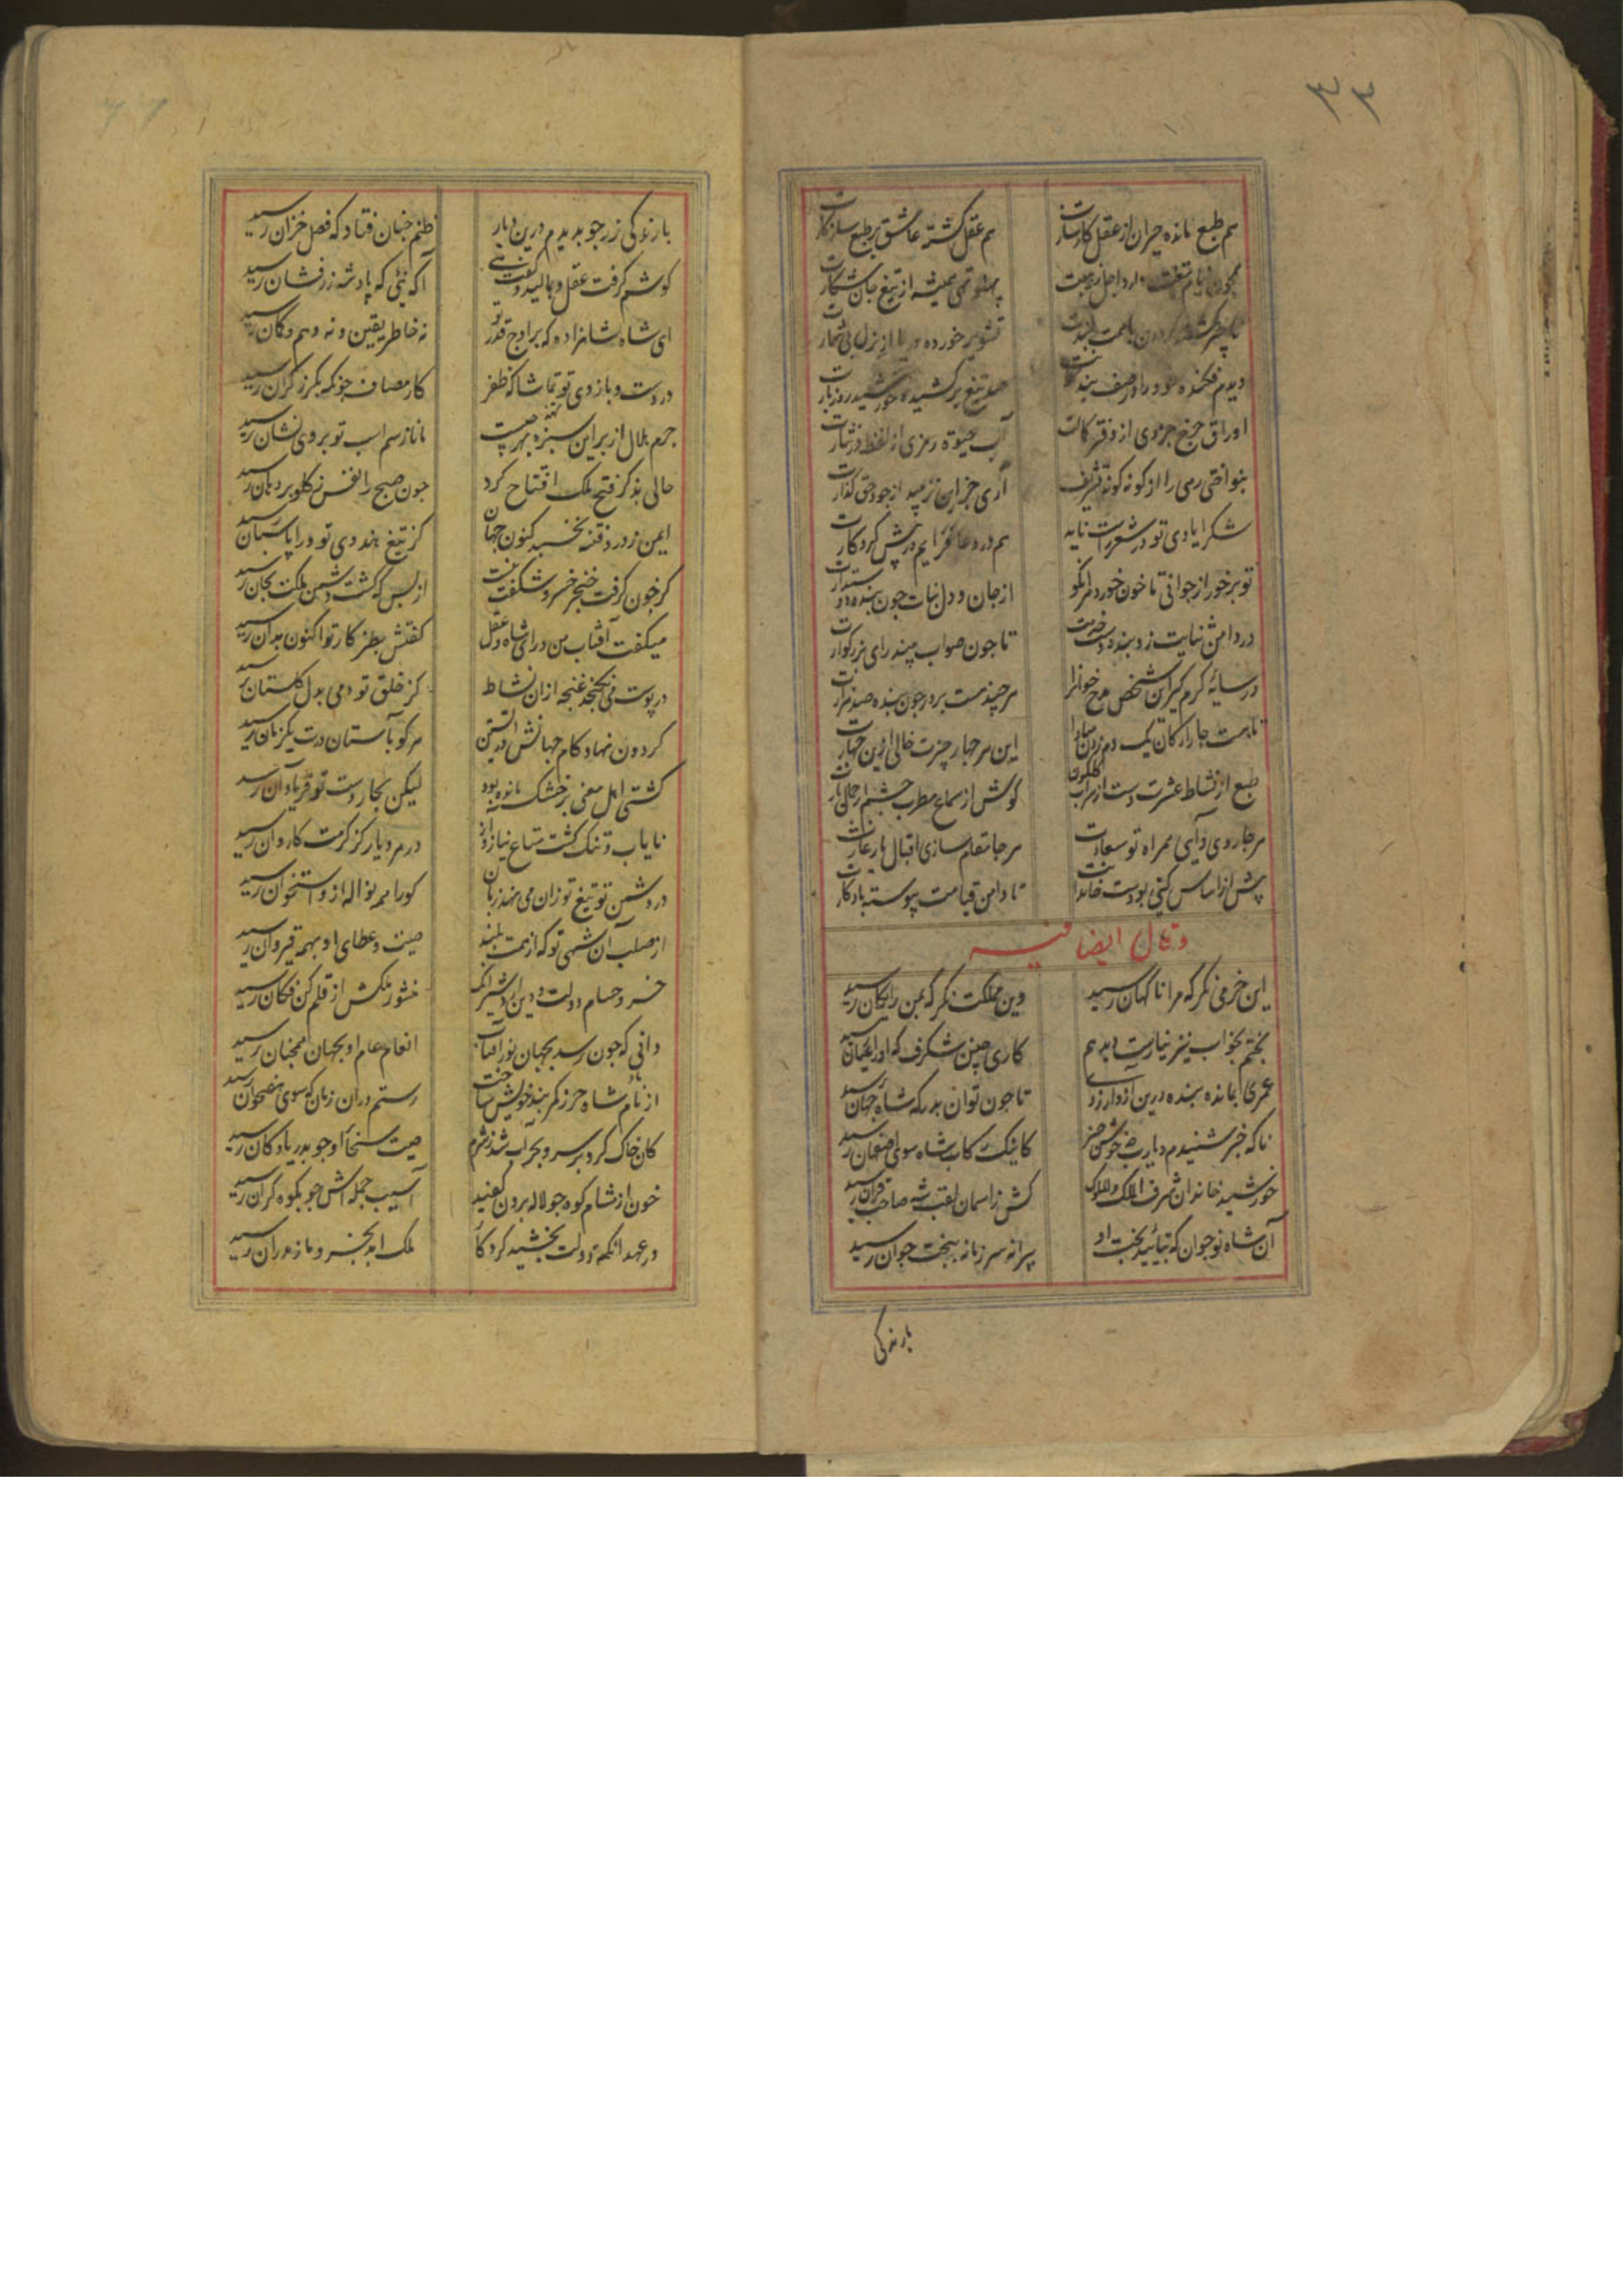 ۳۳
هم طبع مانده حیران از عقل کارسازت هم عقل کشته عاشق بر طبع سازکارت
پهلو تهی همیشه از تیغ جان شکارت
تشویر خورده دریا از بذل بی شمارت
دیدم فکنده خود را در صف بندکانت صد تیغ برکشیده خورشید روز بارت
اوراق چرخ جزوی از دفتر کمالت آب حیوة رمزی از لفظ در نثارت
بنواختی رهی را از کونه کونه تشریف آری جز این نزیبد از جود حق کذارت
شکر ایادی تو در شعر راست ناید هم در دعا فزایم در پیش کردکارت
تو بر خور از جوانی تا خون خورد هرانکو از جان و دل نباشد چون بنده دوستدارت
در دامن ثنایت زد بنده دست خدمت تا چون صواب بیند رای بزرکوارت
در سایهٔ کرم کیر این شخص مدح خوانرا هر چند هست بر در چون بنده صد هزارت
تا هست چار ارکان یک دم زدن مبادا این هر چهار چیزت خالی ازین چهارت
طبع از نشاط عشرت دست از شراب کلکون کوش از سماع مطرب چشم از جمال یارت
هر جا روی و آیی همراه تو سعادت هر جا مقام سازی اقبال یار غارت
پیش از اساس کیتی بودست خاندانت تا دامن قیامت پیوسته یادکارت
و قال ایضا فیه
این خرمی نکر که مرا ناکهان رسید وین مملکت نکر که بمن رایکان رسید
بختم بخواب نیز نیارست دید هم کاری چنین شکرف که او را عیان رسید
عمری بمانده بنده درین آرزو تا چون توان بدرکه شاه جهان رسید
ناکه خبر شنیدم و یارب چه خوش خبر کاینک رکاب شاه سوی اصفهان رسید
خورشید خاندان شرف الملک و الملوک کش ز اسمان لقب شه صاحب قران رسید
آن شاه نوجوان که بتایید بخت او پیرانه سر زمانه ببخت جوان رسید
بارندکی
بارندکی زر چو بدیدم درین دیار ظنم چنان فتاد که فصل خزان رسید
کوشم کرفت عقل و بمالید و کفت هی آکه نیی که پادشه زرفشان رسید
ای شاه شاهزاده که بر اوج قدر تو نه خاطر یقین و نه وهم و کمان رسید
در دست و بازوی تو تماشا کند ظفر کار مصاف چونکه بکرز کران رسید
جرم هلال از بر این سبزه بهر چیست مانا ز سم اسب تو بر وی نشان رسید
حالی بذکر فتح ملک افتتاح کرد چون صبح را نفس ز کلو بر دهان رسید
ایمن ز دزد فتنه بخسبد کنون جهان کز تیغ هندوی تو ورا پاسبان رسید
کر خون کرفت خنجر خسرو شکفت نیست از بس که کشت دشمن ملکت بجان رسید
میکفت آفتاب من و رای شاه و عقل کفتش بطنز کار تو اکنون بدان رسید
در پوست می نکنجد غنچه ازان نشاط کز خلق تو دمی بدل کلستان رسید
کردون نهاد کام جهانش در آستین هر کو بآستان درت یکزمان رسید
کشتی اهل معنی بر خشک مانده بود لیکن بحار دست تو فریاد آن رسید
نایاب و تنک کشت متاع نیاز و آز در هر دیار کز کرمت کاروان رسید
در دشمن تو تیغ تو زان می نهد زبان کورا همه نواله ازو استخوان رسید
از صلب آن شهی تو که از همت بلند صیت و عطای او بهمه قیروان رسید
خسرو حسام دولت و دین اردشیر آنک منشور ملکش از قلم کن فکان رسید
دانی که چون رسد بجهان نور آفتاب انعام عام او بجهان همچنان رسید
از نام شاه حرز کمربند خویش ساخت رستم دران زمان که سوی هفتخوان رسید
کان خاک کرد بر سر و بحر آب شد ز شرم صیت سخا او چو بدریا و کان رسید
خون از مشام کوه چو لاله برون کفید آسیب حمله اش چو بکوه کران رسید
در عهد آنکه دولت بخشید کردکار ملک ابد بخسرو مازندران رسید